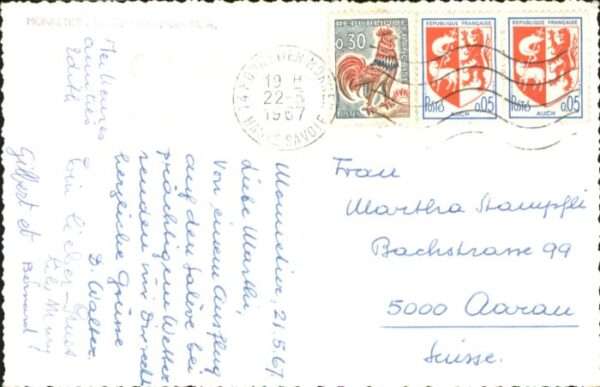 REPUBLIQUE
0,30
RÉPUBLIQUE FRANÇAISE
Postes 0,05
AUCH
RÉPUBLIQUE FRANÇAISE
Postes 0,05
AUCH
19 H
22-5
1967
SAVOIE
Monnetier, 21.5.67
Liebe Martha,
Von einem Ausflug
auf den Salève bei
prächtigem Wetter
senden wir Dir recht
herzliche Grüsse
D. Walter
Meilleures
amitiés
Edith
Gilbert et
Bernard!
Frau
Martha Stampfli
Bachstrasse 99
5000 Aarau
Suisse.